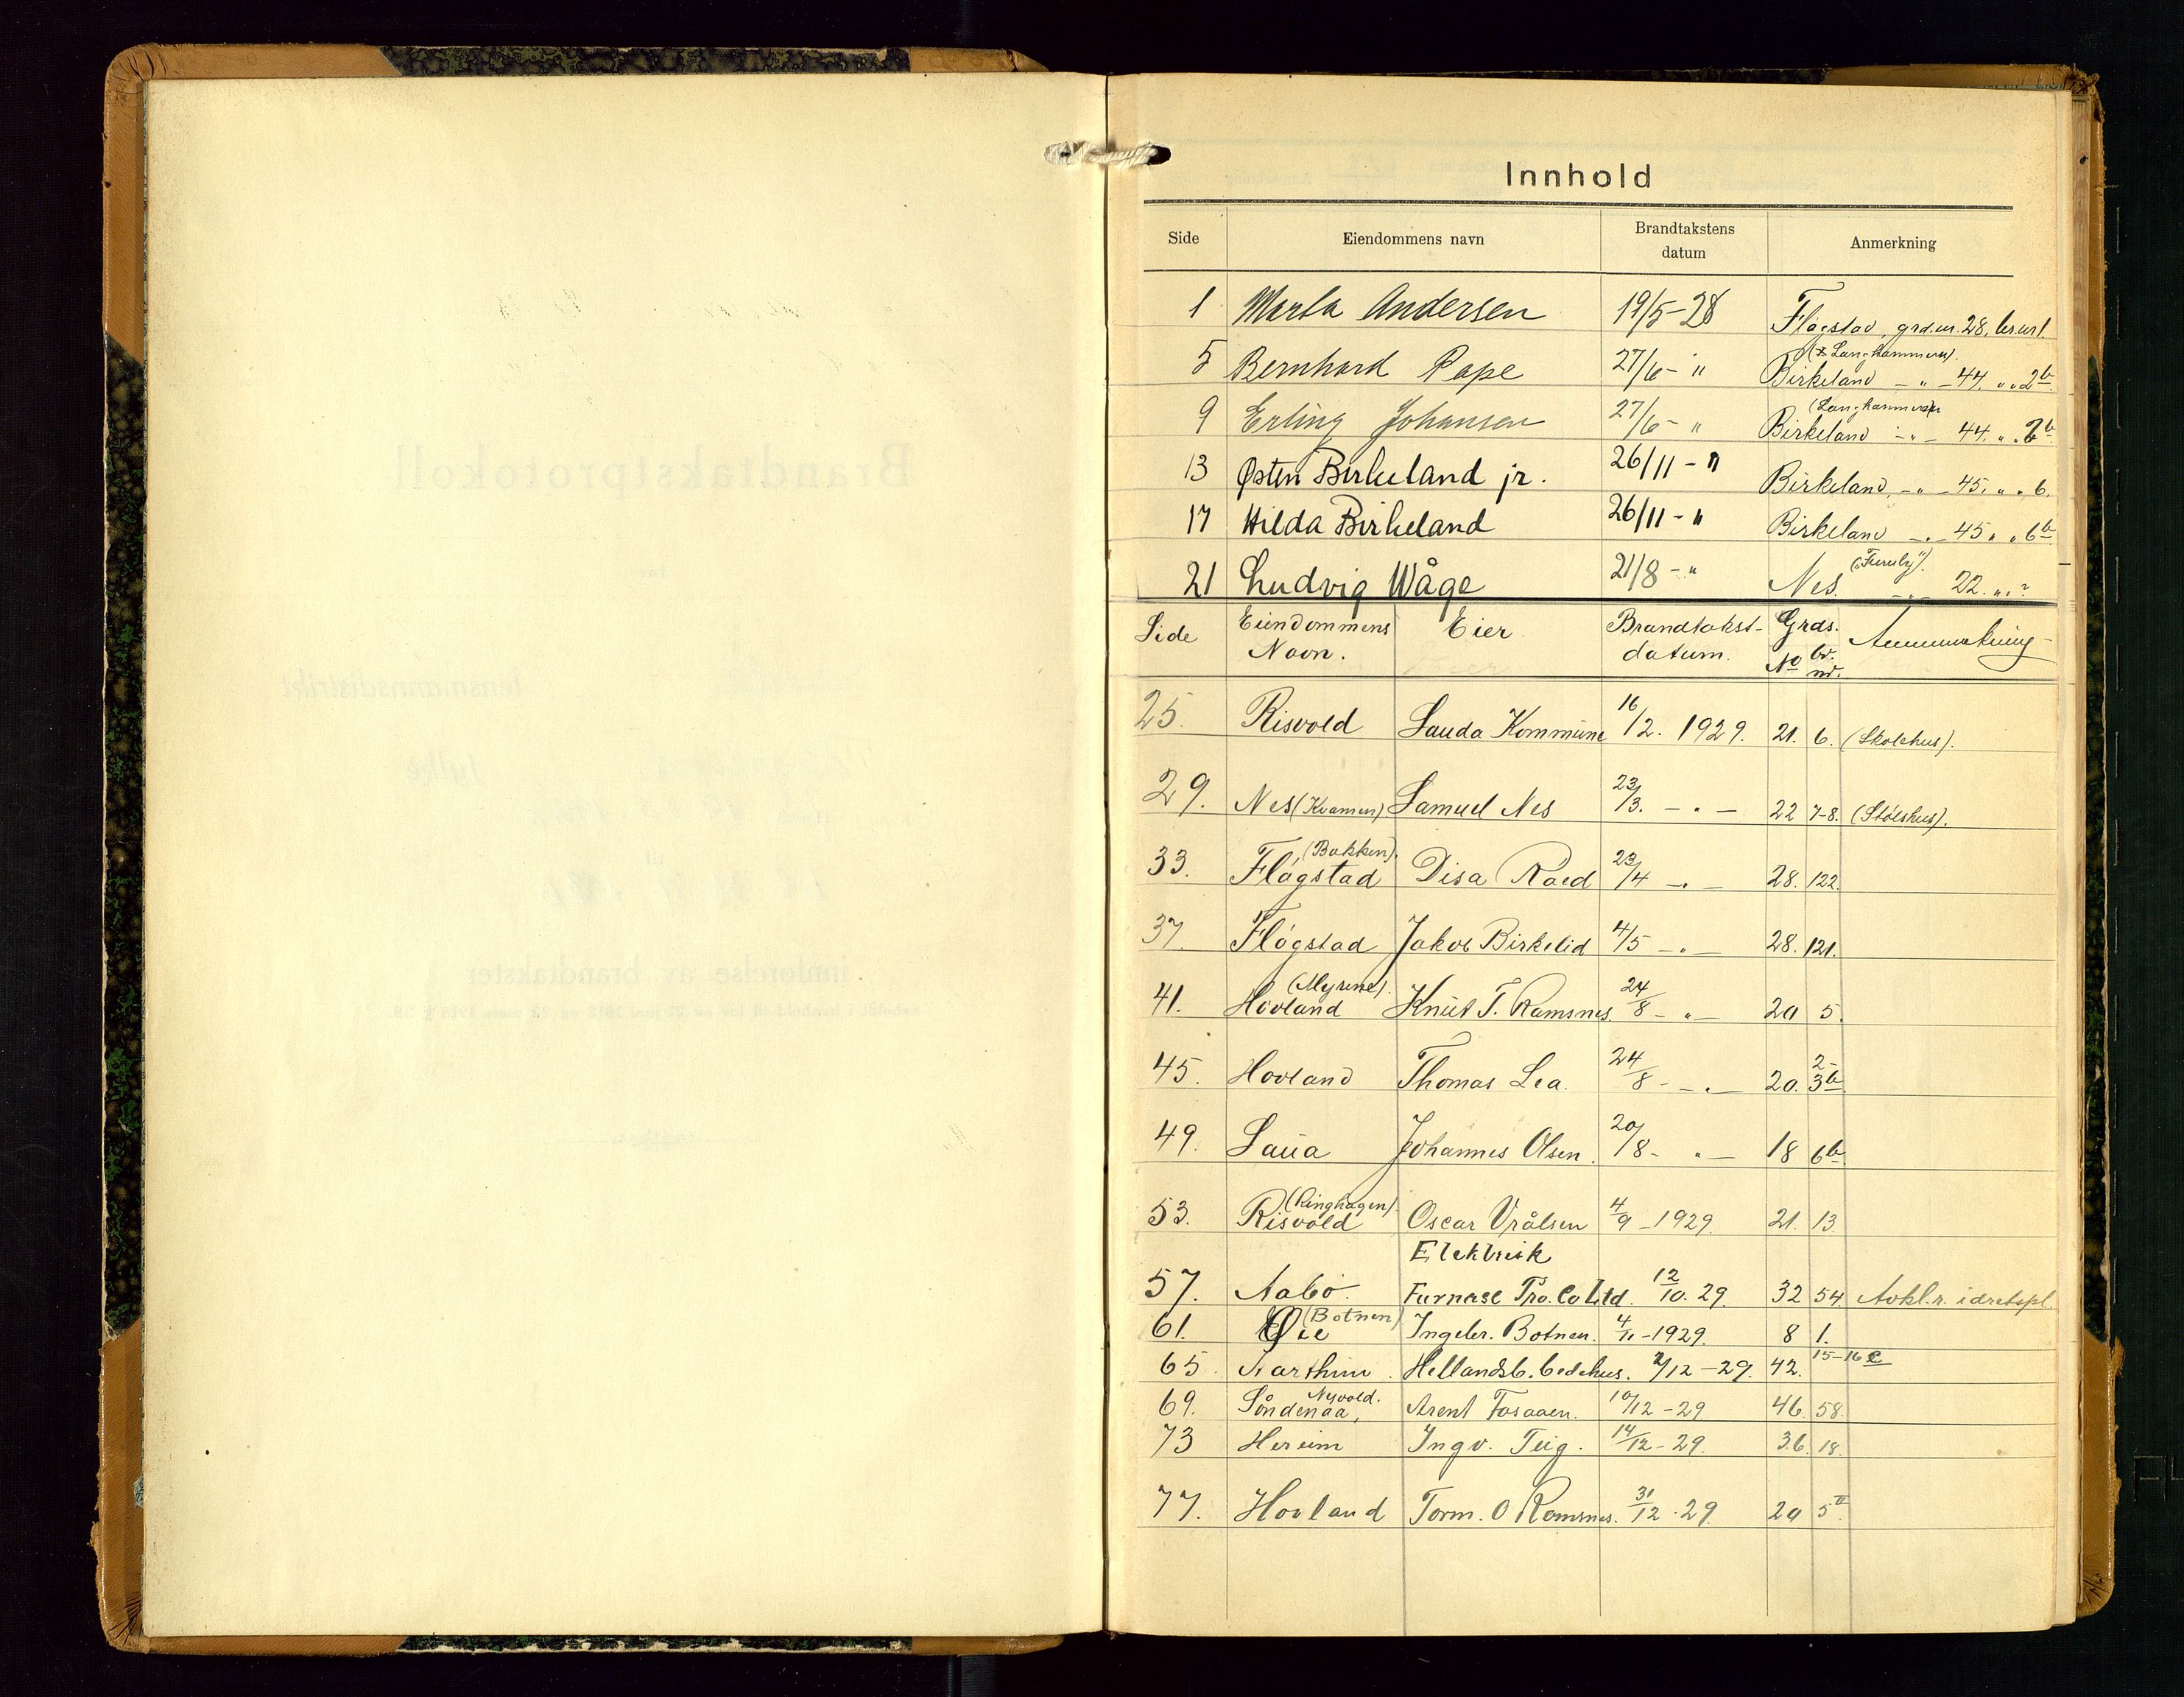 Innhold
Side Eiendommens navn Brandtakstens datum Anmerkning
1 Marta Andersen 19/5-28 Fløgstad, grd.nr. 28, br.nr 1.
5 Bernhard Pape 27/6- " Birkeland (Langhammeren). - " - 44. " " 2b.
9 Erling Johansen 27/6- " Birkeland (Langhammeren - " - 44. " " 2b.
13 Østen Birkeland jr. 26/11 - " Birkeland, - " - 45. " " 6.
17 Hilda Birkeland 26/11 - " Birkeland - " - 45 " " 6b.
21 Ludvig Wåge 21/8 - " Nes. ("Furuly"). - " - 22. " " ?
Side Eiendommens Navn. Eier. Brandtakst-datum. Grds. No br. nr. Anmerkning
25. Risvold Sauda Kommune 16/12. 1929. 21. 6. (Skolehus).
29. Nes (Kvamen) Samuel Nes 23/3. - " - 22 7-8. (Stølshus).
33. Fløgstad (Bakken). Disa Råed 23/4 - " - 28. 122.
37. Fløgstad Jakob Birkelid 4/5 - " - 28. 121.
41. Hovland (Myrene). Knut T. Ramsnes. 24/8 - " - 20 5.
45. Hovland Thomas Lea. 24/8 - - " - 20. 2-3b.
49. Saua Johannes Olsen. 20/8 - " - 18 6b.
53. Risvold (Ringhagen). Oscar Vrålsen 4/9 - 1929. 21. 13.
Elektrisk
57. Aabø. Furnase Pro. Co Ltd. 12/10. 29. 32 54. Avkl.r. idretspl.
61. Øie (Botnen) Ingebr. Botnen. 4/11 - 1929. 8 1.
65. Hellandsb. bedehus. 2/12 - 29. 42. 15-16 c
69. Søndenaa, Nyvold. Arent 10/12 - 29 46. 58.
73 Hereim Ingv. Teig. 14/12 - 29. 36. 18.
77. Hovland Torm. O Ramsnes. 31/12 . 29. 20 5II.